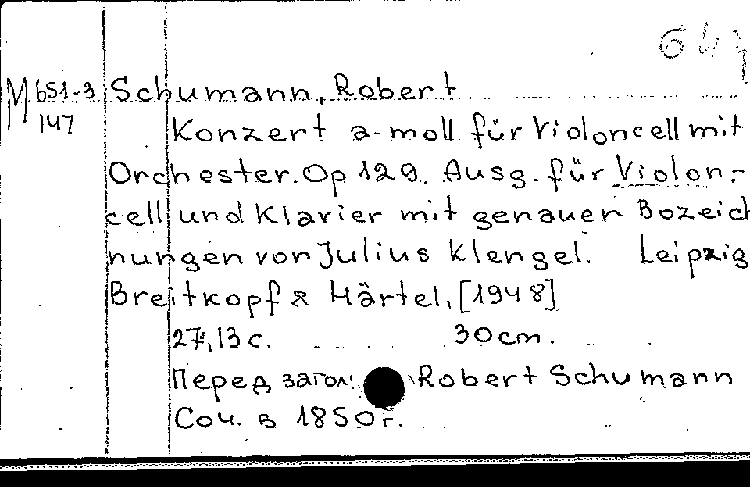 64
M 651-3 Schumann, Robert
147
Konzert a-moll für Violoncell mit
Orchester. Op 129. Ausg. für Violon-
cell und Klavier mit genauen Bozeich
nungen von Julius Klengel. Leipzig
Breitkopf & Härtel, [1948]
27, 13 с. 30cm.
Перед загол: Robert Schumann
Соч. в 1850г.